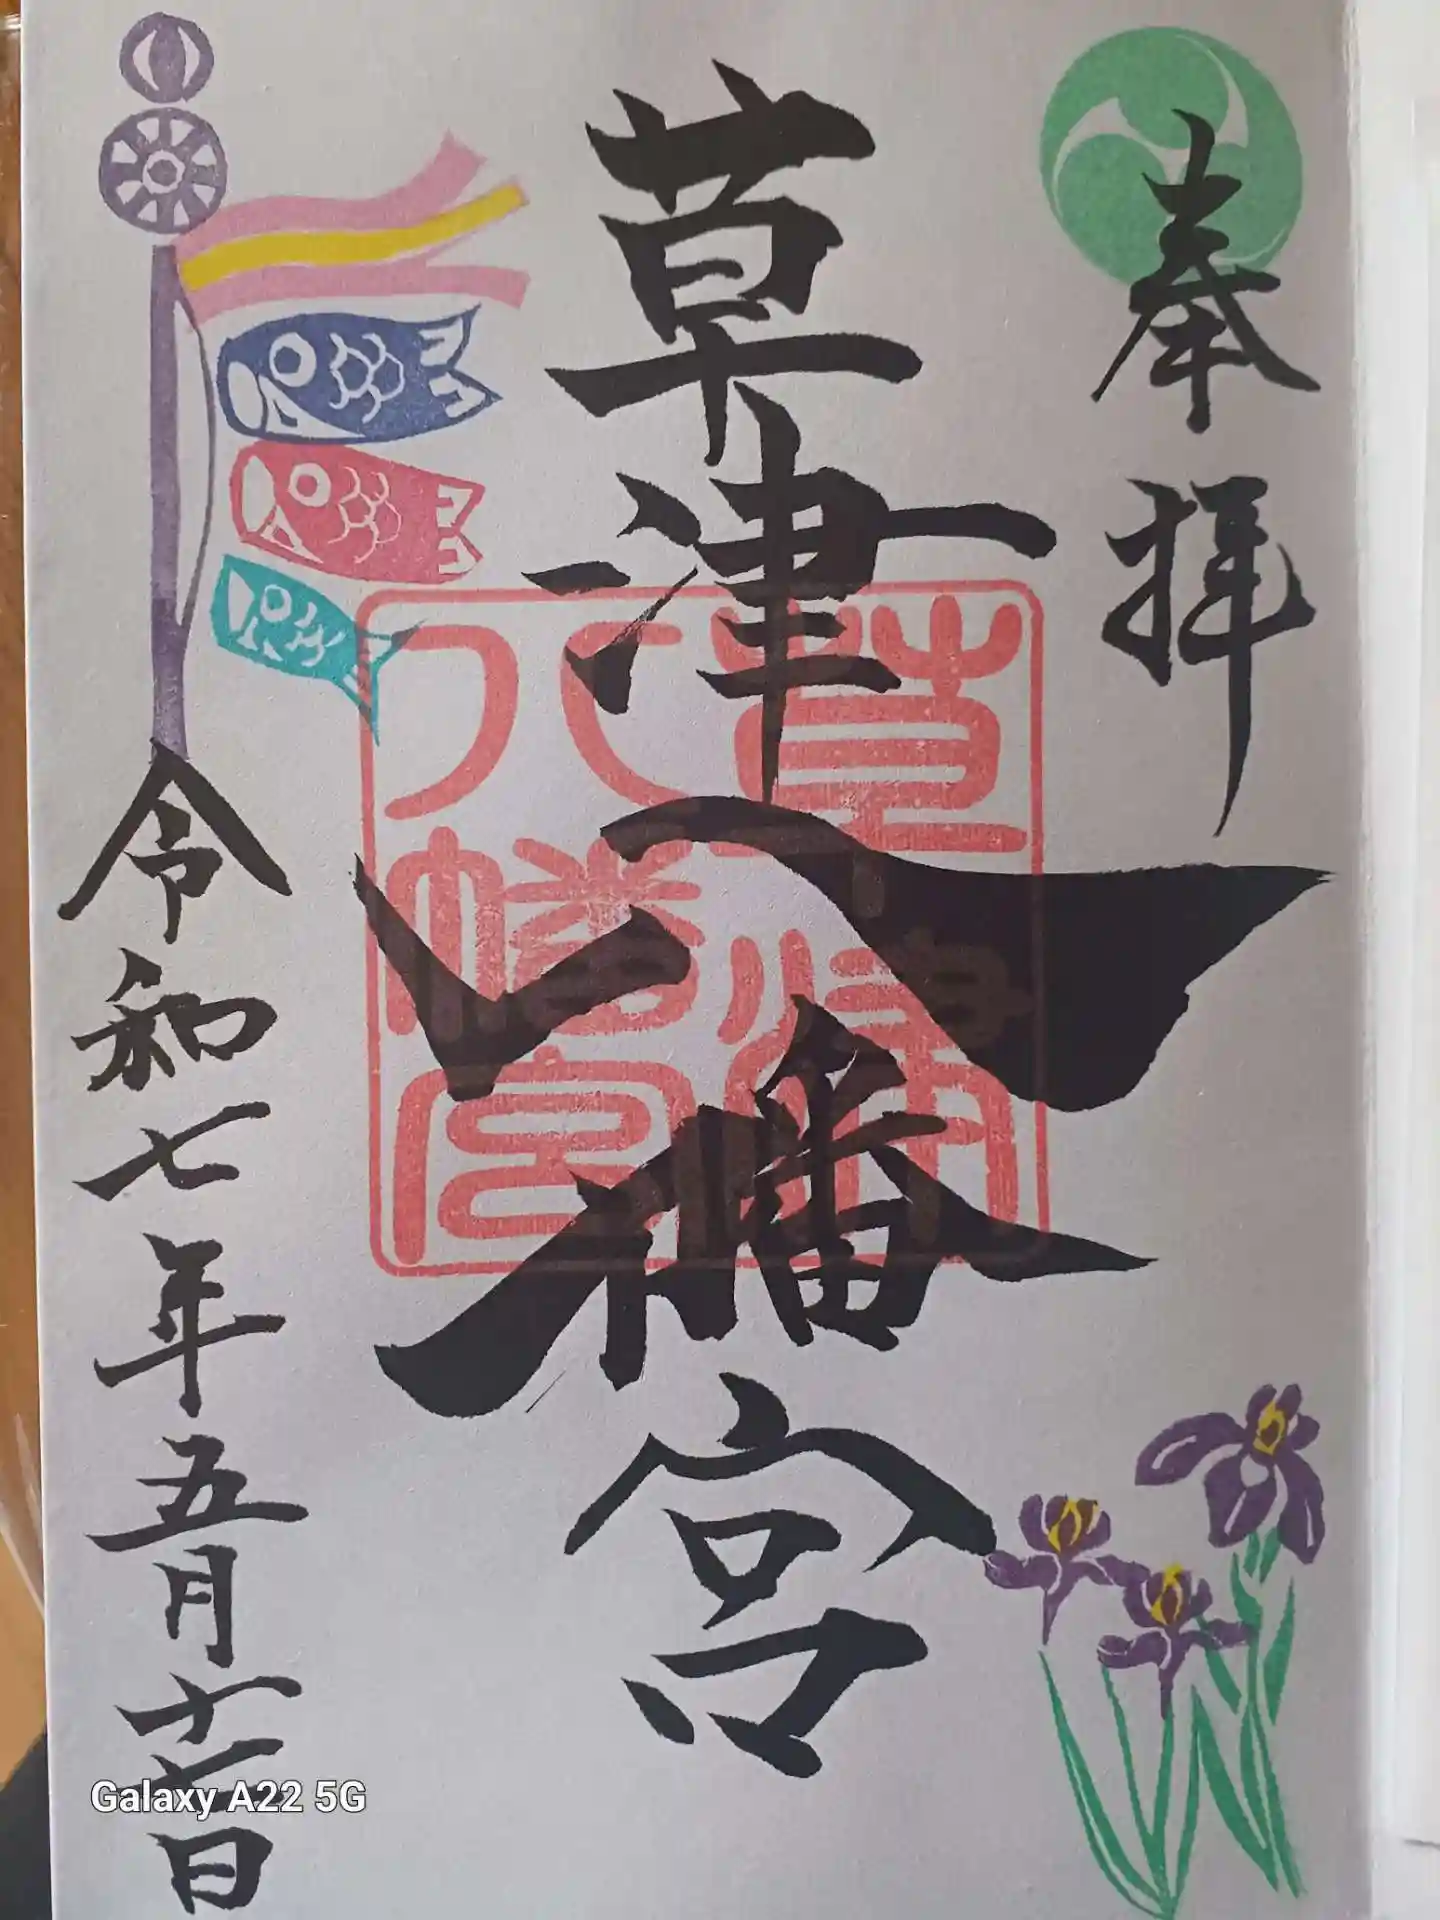 奉拝
草津八幡宮
草津
八幡宮
令和七年五月十七日
Galaxy A22 5G